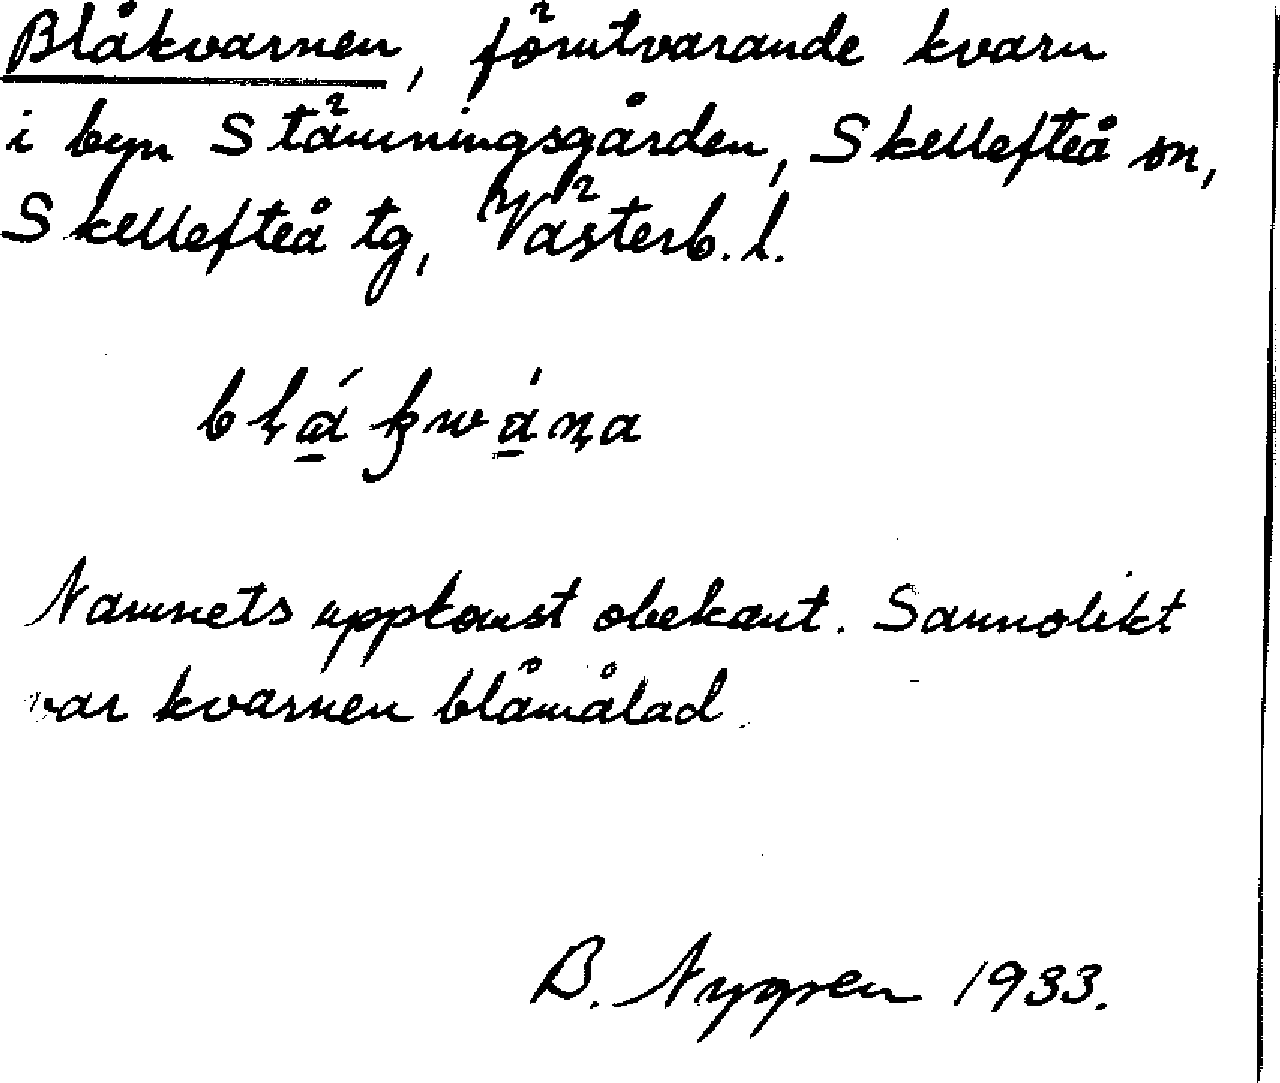 Blåkvarnen, förutvarande kvarn
i byn Stämningsgården, Skellefteå sn,
Skellefteå tg, Västerb. l.
blá̱kwá̱ṇa
Namnets uppkomst obekant. Sannolikt
var kvarnen blåmålad.
B. Nygren 1933.